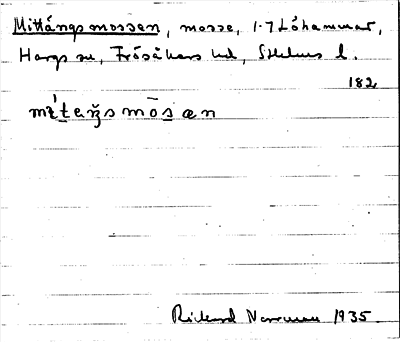 Mittängsmossen, mosse, 1-7 Löhammar,
Hargs sn, Frösåkers hd, Sthlms l.
182
Rickard 1935.